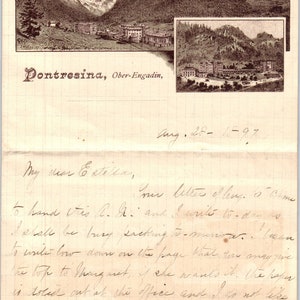 Pontresina, Ober-Engadin,
Aug. 25 - 1 - 97
My dear Estelle,
Your letter of Aug. 9" came
to hand this A.M. and I write to-day as
I shall be busy packing to-morrow. I began
to write low down on the page that you may give
the top to Margaret, if she wants it. The
is sold out at the office and I